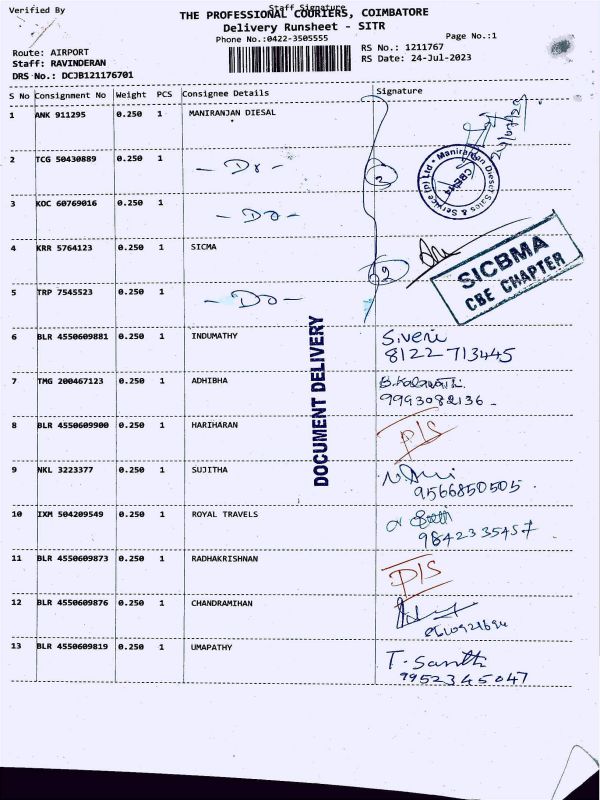 Verified By
Staff Signature
THE PROFESSIONAL COURIERS, COIMBATORE
Delivery Runsheet - SITR
Phone No.:0422-3505555
Page No.:1
Route: AIRPORT
Staff: RAVINDERAN
DRS No.: DCJB121176701
RS No.: 1211767
RS Date: 24-Jul-2023
S No Consignment No Weight PCS Consignee Details Signature
1 ANK 911295 0.250 1 MANIRANJAN DIESAL
24/07/23
Maniranjan Diesel Sales & Service (P) Ltd
CBE-44
2 TCG 50430889 0.250 1 - Do - 2
3 KOC 60769016 0.250 1 - Do -
4 KRR 5764123 0.250 1 SICMA 2
SICBMA
CBE CHAPTER
5 TRP 7545523 0.250 1 - Do -
6 BLR 4550609881 0.250 1 INDUMATHY S.veni
8122713445
7 TMG 200467123 0.250 1 ADHIBHA B.Kalavathi
9993082136
8 BLR 4550609900 0.250 1 HARIHARAN P/S
DOCUMENT DELIVERY
9 NKL 3223377 0.250 1 SUJITHA
9566850505
10 IXM 504209549 0.250 1 ROYAL TRAVELS
9842335457
11 BLR 4550609873 0.250 1 RADHAKRISHNAN P/S
12 BLR 4550609876 0.250 1 CHANDRAMIHAN
13 BLR 4550609819 0.250 1 UMAPATHY T. Santhi
9952345047